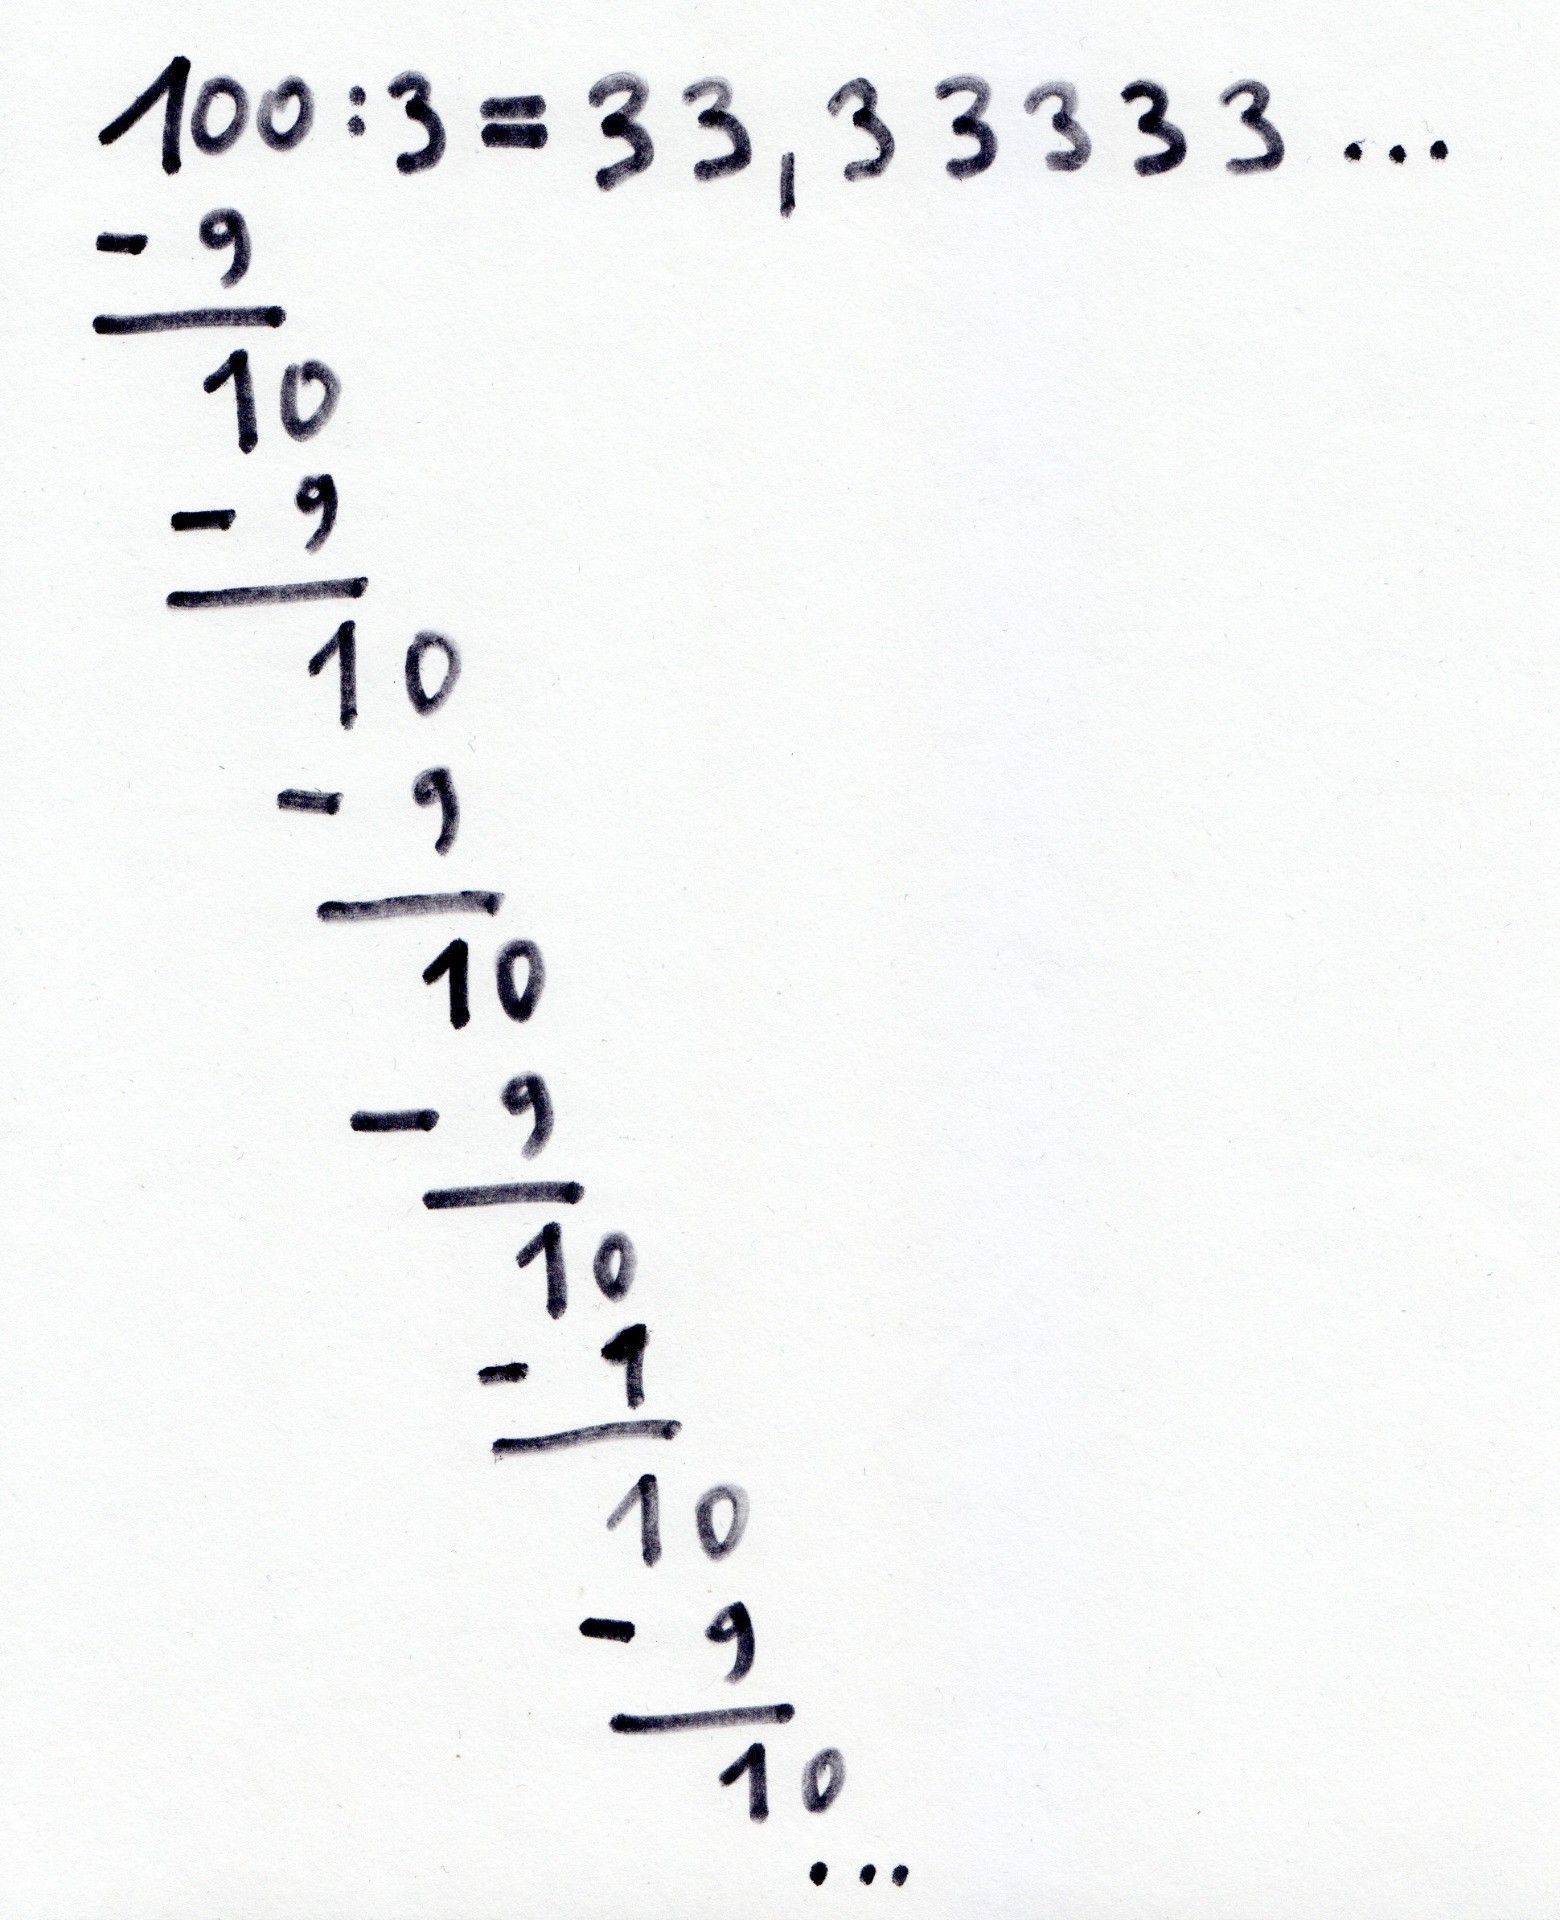 100:3=33,33333...
- 9
10
- 9
10
- 9
10
- 9
10
- 1
10
- 9
10
...